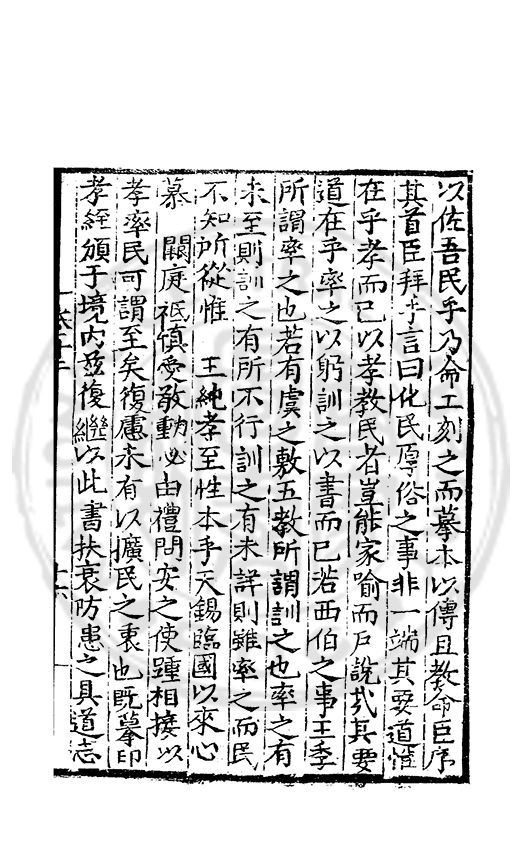 以佐吾民乎乃命工刻之而摹本以傳且敎命臣序
其首臣拜手言曰化民厚俗之事非一端其要道惟
在乎孝而已以孝教民者豈能家喻而戶說哉其要
道在乎率之以躬訓之以書而已若西伯之事王季
所謂率之也若有虞之敷五教所謂訓之也率之有
未至則訓之有所不行訓之有未詳則雖率之而民
不知所從惟　王純孝至性本乎天錫臨國以來心
慕　闕庭祗愼愛敬動必由禮問安之使踵相接以
孝率民可謂至矣復慮未有以擴民之衷也旣摹印
孝經頒于境內玆復繼以此書扶衰防患之具道志